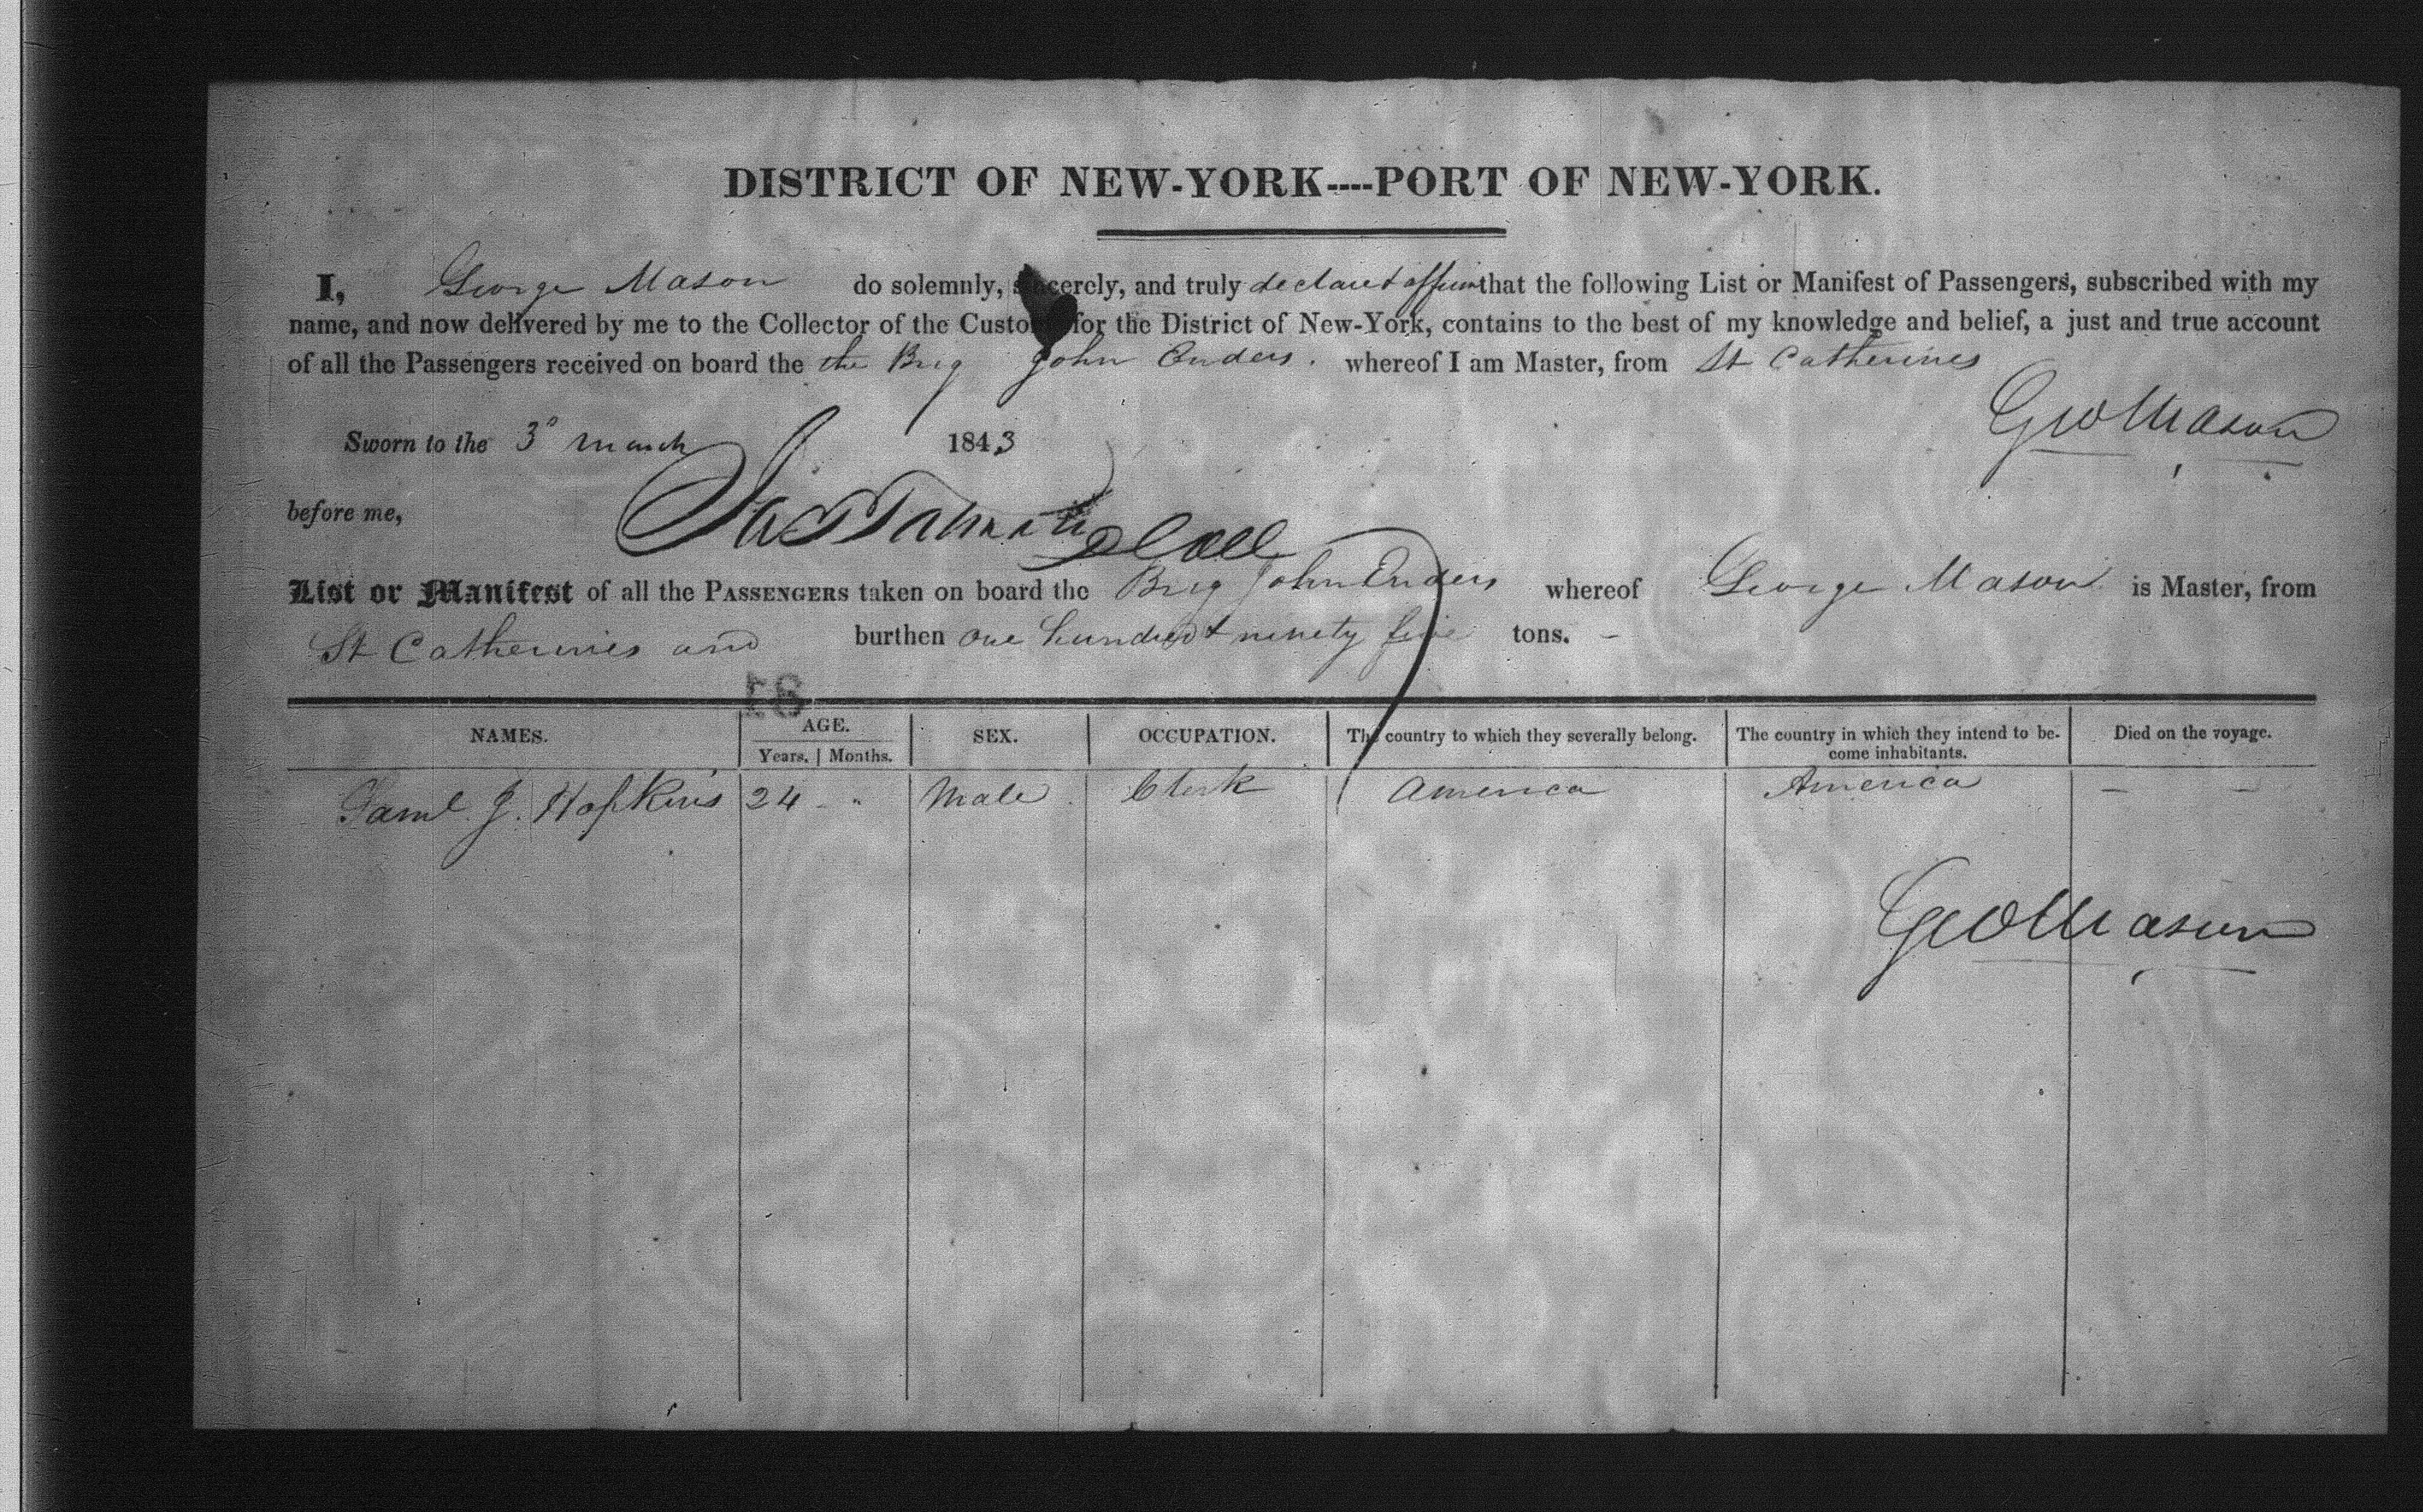 DISTRICT OF NEW-YORK----PORT OF NEW-YORK.
I, George Mason do solemnly, sincerely, and truly declare & affirm that the following List or Manifest of Passengers, subscribed with my
name, and now delivered by me to the Collector of the Customs for the District of New-York, contains to the best of my knowledge and belief, a just and true account
of all the Passengers received on board the the Brig John Enders. whereof I am Master, from St Catherines
Geo Mason
Sworn to the 3d March 1843
before me,
List or Manifest of all the PASSENGERS taken on board the Brig John Enders whereof George Mason is Master, from
St Catherines and burthen one hundred & ninety five tons. -
NAMES. AGE. SEX. OCCUPATION. The country to which they severally belong. The country in which they intend to be- Died on the voyage.
Years. Months. come inhabitants.
Saml. J. Hopkins 24 - " Male Clerk America America - -
Geo Mason